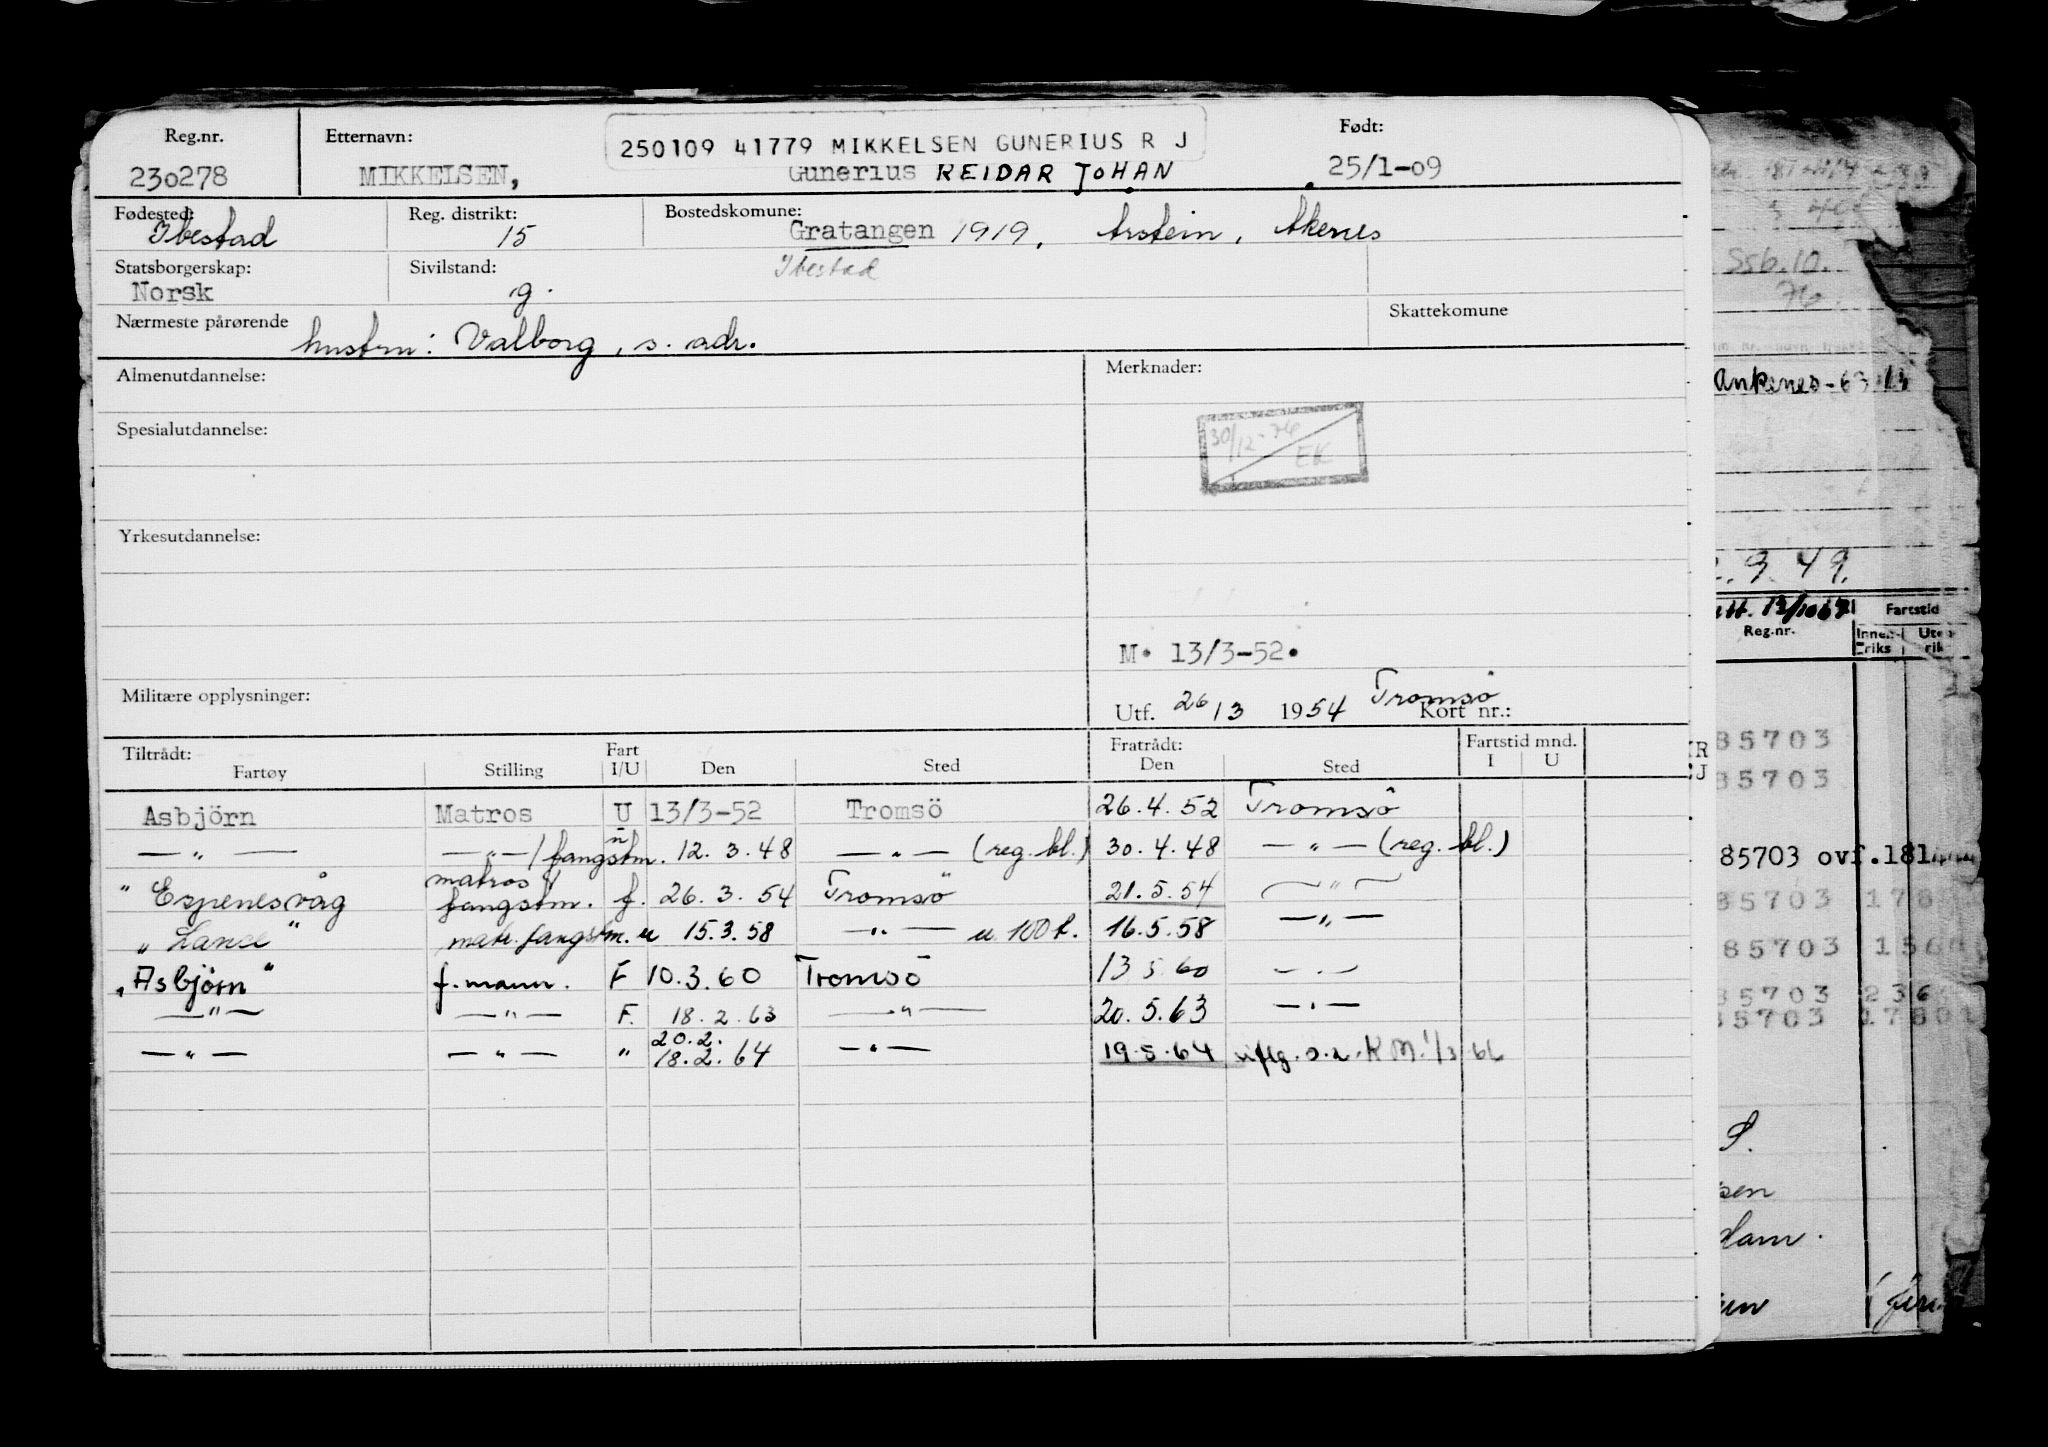 Reg.nr. Etternavn: 250109 41779 MIKKELSEN GUNERIUS R J Født:
230278 MIKKELSEN, Gunerius REIDAR JOHAN 25/1-09
Fødested: Reg. distrikt: Bostedskomune:
Ibestad 15 Gratangen 1919, Årstein,
Statsborgerskap: Sivilstand: Ibestad
Norsk g.
Nærmeste pårørende Skattekomune
hustru: Valborg, s. adr.
Almenutdannelse: Merknader:
30/12-76
EK
Spesialutdannelse:
Yrkesutdannelse:
M. 13/3-52.
Militære opplysninger:
Utf. 26/3 1954 Tromsö Kort nr.:
Tiltrådt: Fart Fratrådt: Fartstid mnd.
Fartøy Stilling I/U Den Sted Den Sted I U
Asbjörn Matros U 13/3-52 Tromsö 26.4.52 Tromsö
— " — — " — / fangstm. u 12.3.48 — " — (reg. bl.) 30.4.48 — " — (reg. bl.)
" Espenesvåg matros / fangstm. f. 26.3.54 Tromsö 21.5.54 — " —
" Lance " matr. fangstm. u 15.3.58 — " — u. 100 t. 16.5.58 — " —
"Asbjörn" f. mann. F 10.3.60 Tromsö 13 5 60 — " —
— " — — " — F. 18.2.63 — " — 20.5.63 — " —
— " — — " — " 20.2.
18.2.64 — " — 19.5.64
Ssb.10.
76.
Ankenes-63
9.49.
13/10
Reg.nr. Fartstid
85703
85703
85703 ovf.181
85703 178
85703 156
85703 236
85703 1780
S.